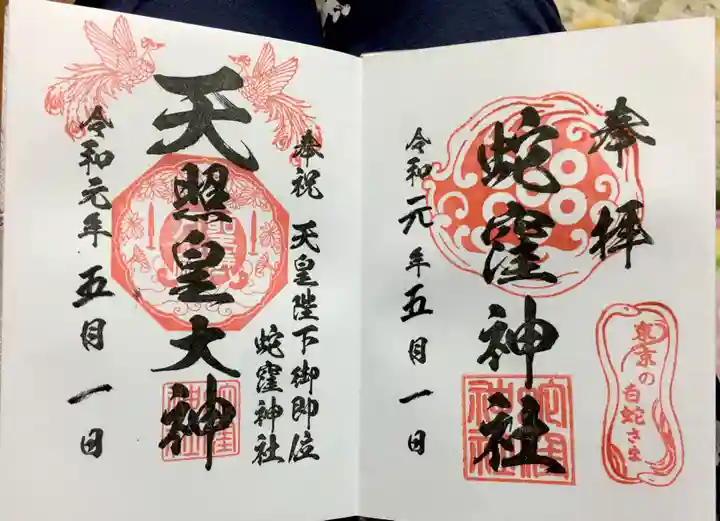 奉拝
蛇窪神社
令和元年五月一日
東京の
白蛇さま
蛇窪神社
奉祝 天皇陛下御即位
蛇窪神社
天照皇大神
令和元年五月一日